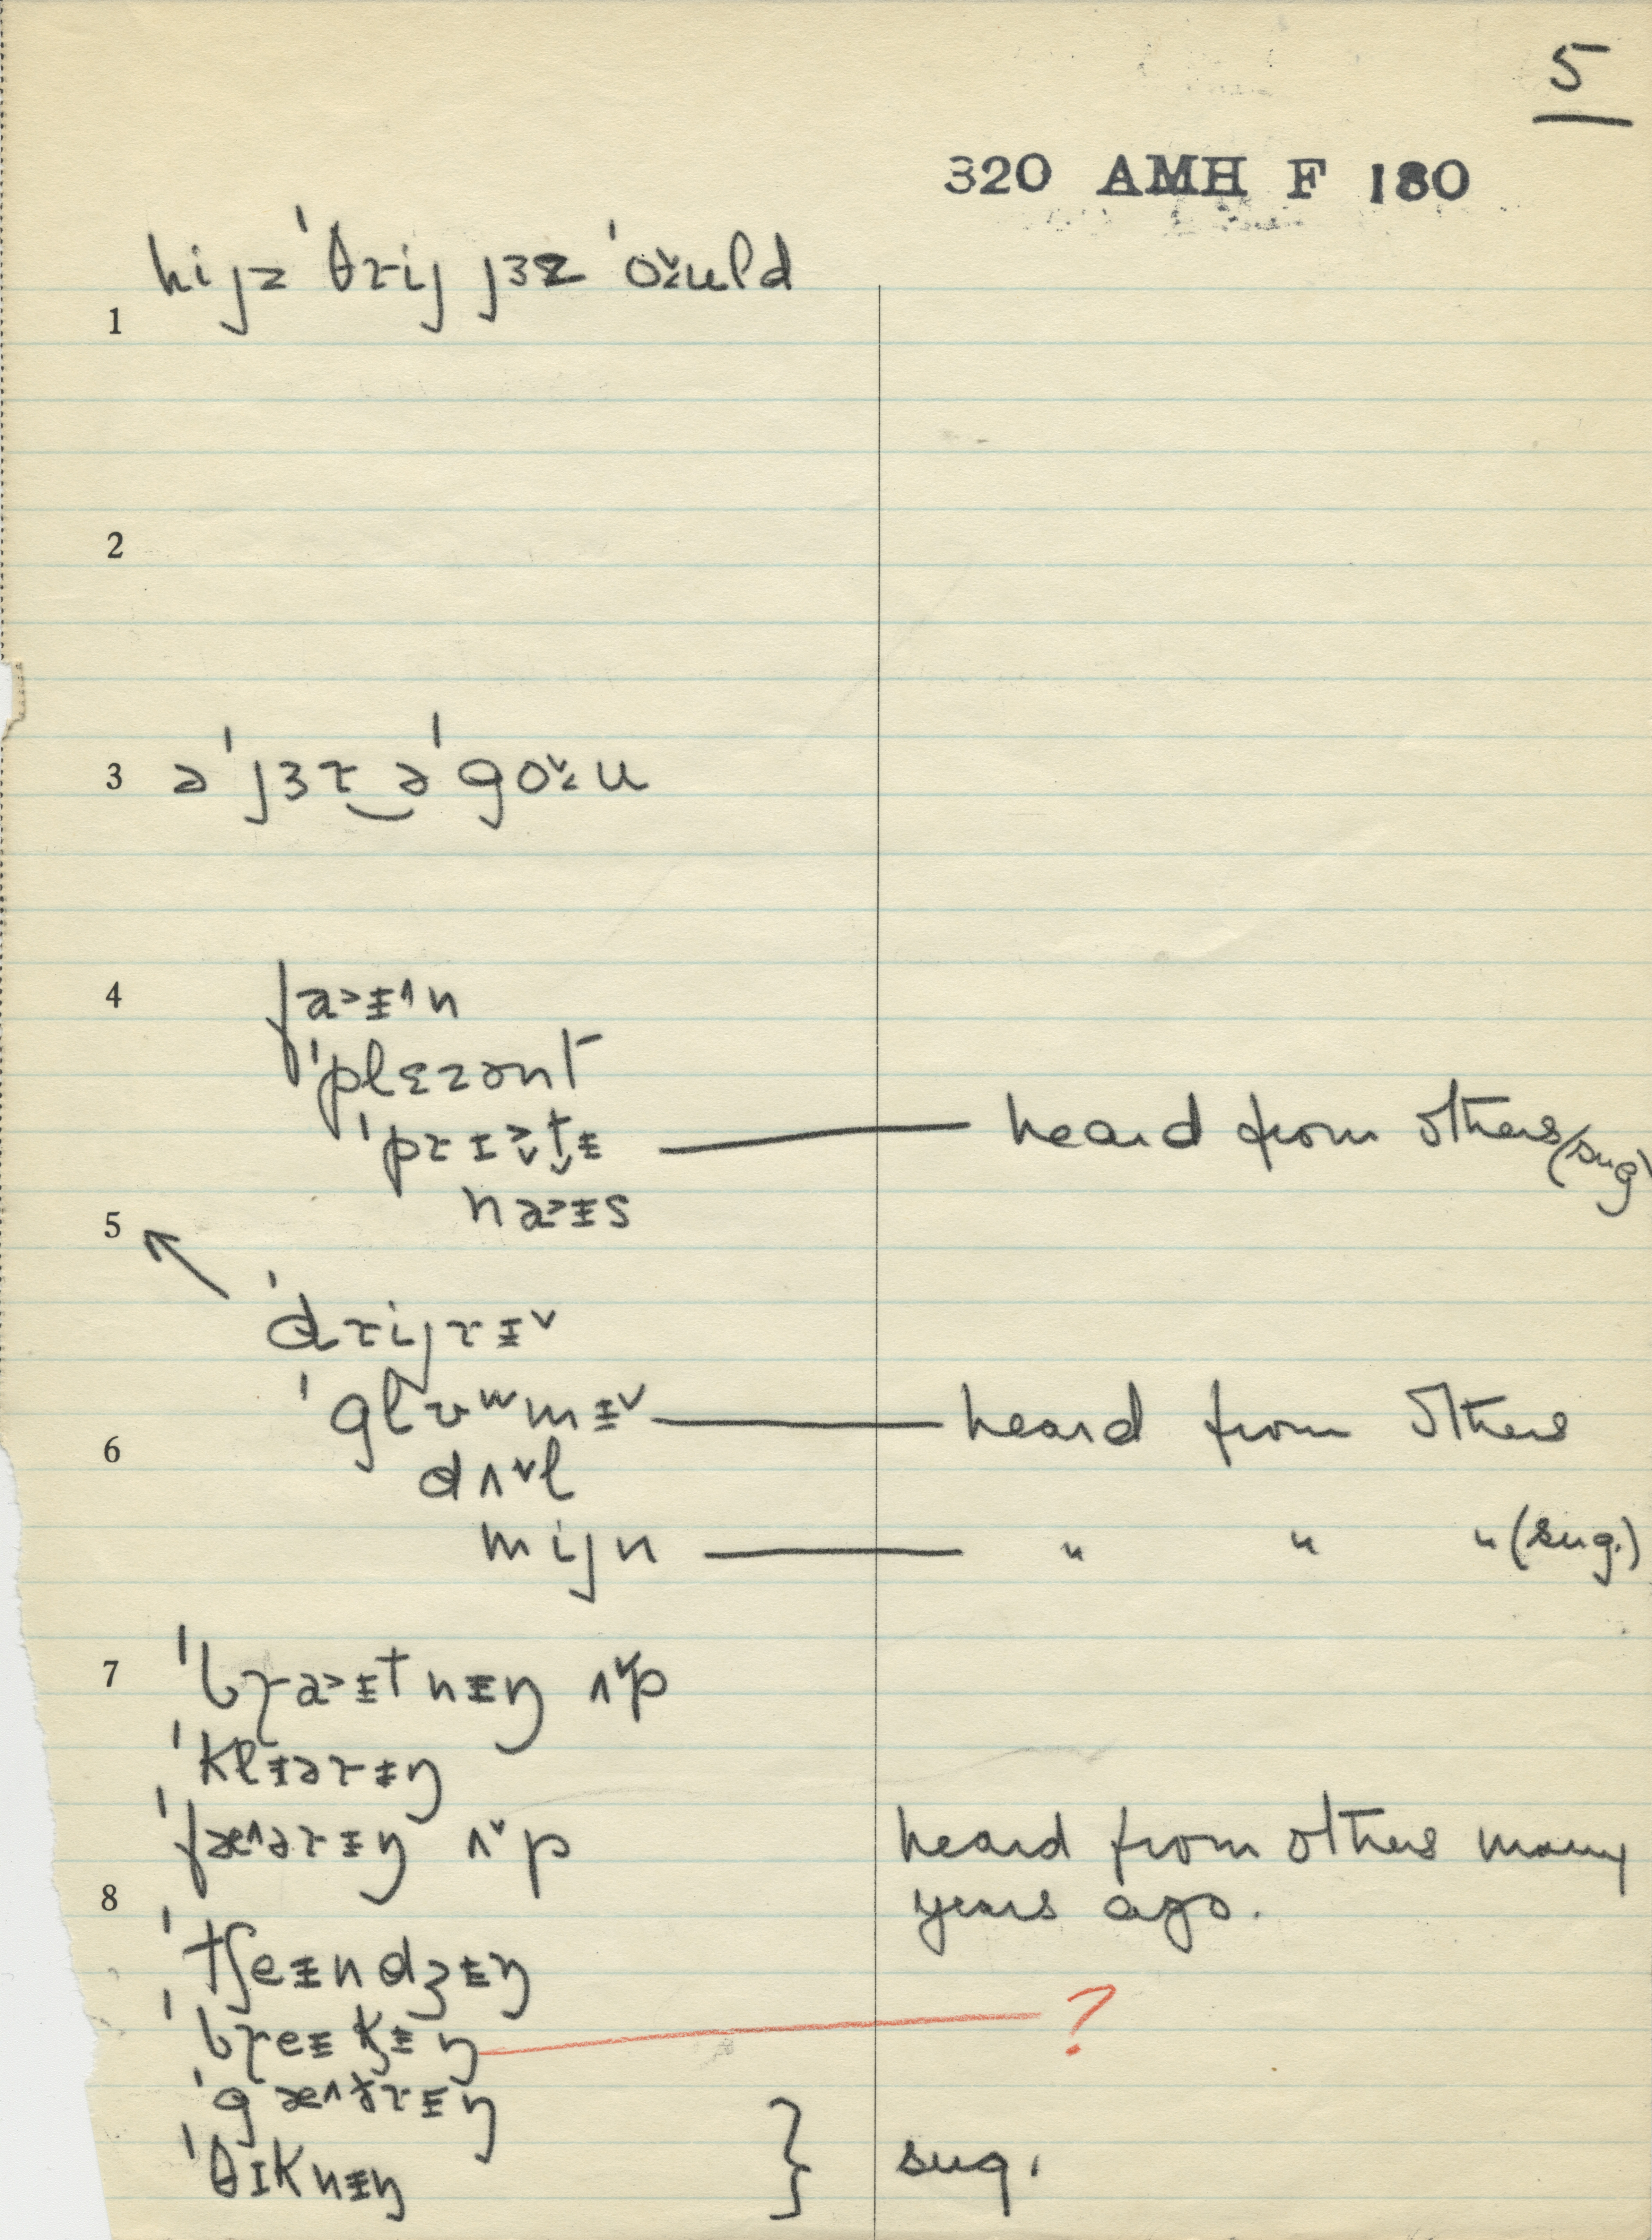 5
320 AMH F 180
hijz ˈθɾij jɜz ˈo˅ᵾld
1
2
3 ə ˈjɜɾ‿ə ˈgo˅u
4 faᵻ˄n
ˈplɛzənt
ˈpɾɪt̬ᵻ — heard from others (sug)
naᵻs
5
ˈdɾijɾᵻ˅
ˈglʊʷmᵻ˅ — heard from others
6
dʌ˅l
mijn — " " " (sug.)
7 ˈbɾa˃ᵻtnᵻŋ ʌ˅p
ˈklᵻəɾᵻŋ
ˈfæ˄əɾᵻŋ ʌ˅p heard from others many
8 years ago.
ˈtʃeᵻndʒᵻŋ
ˈbɾeᵻkᵻŋ — ?
ˈgæ˄ðɾᵻŋ
ˈθɪknᵻŋ } sug.